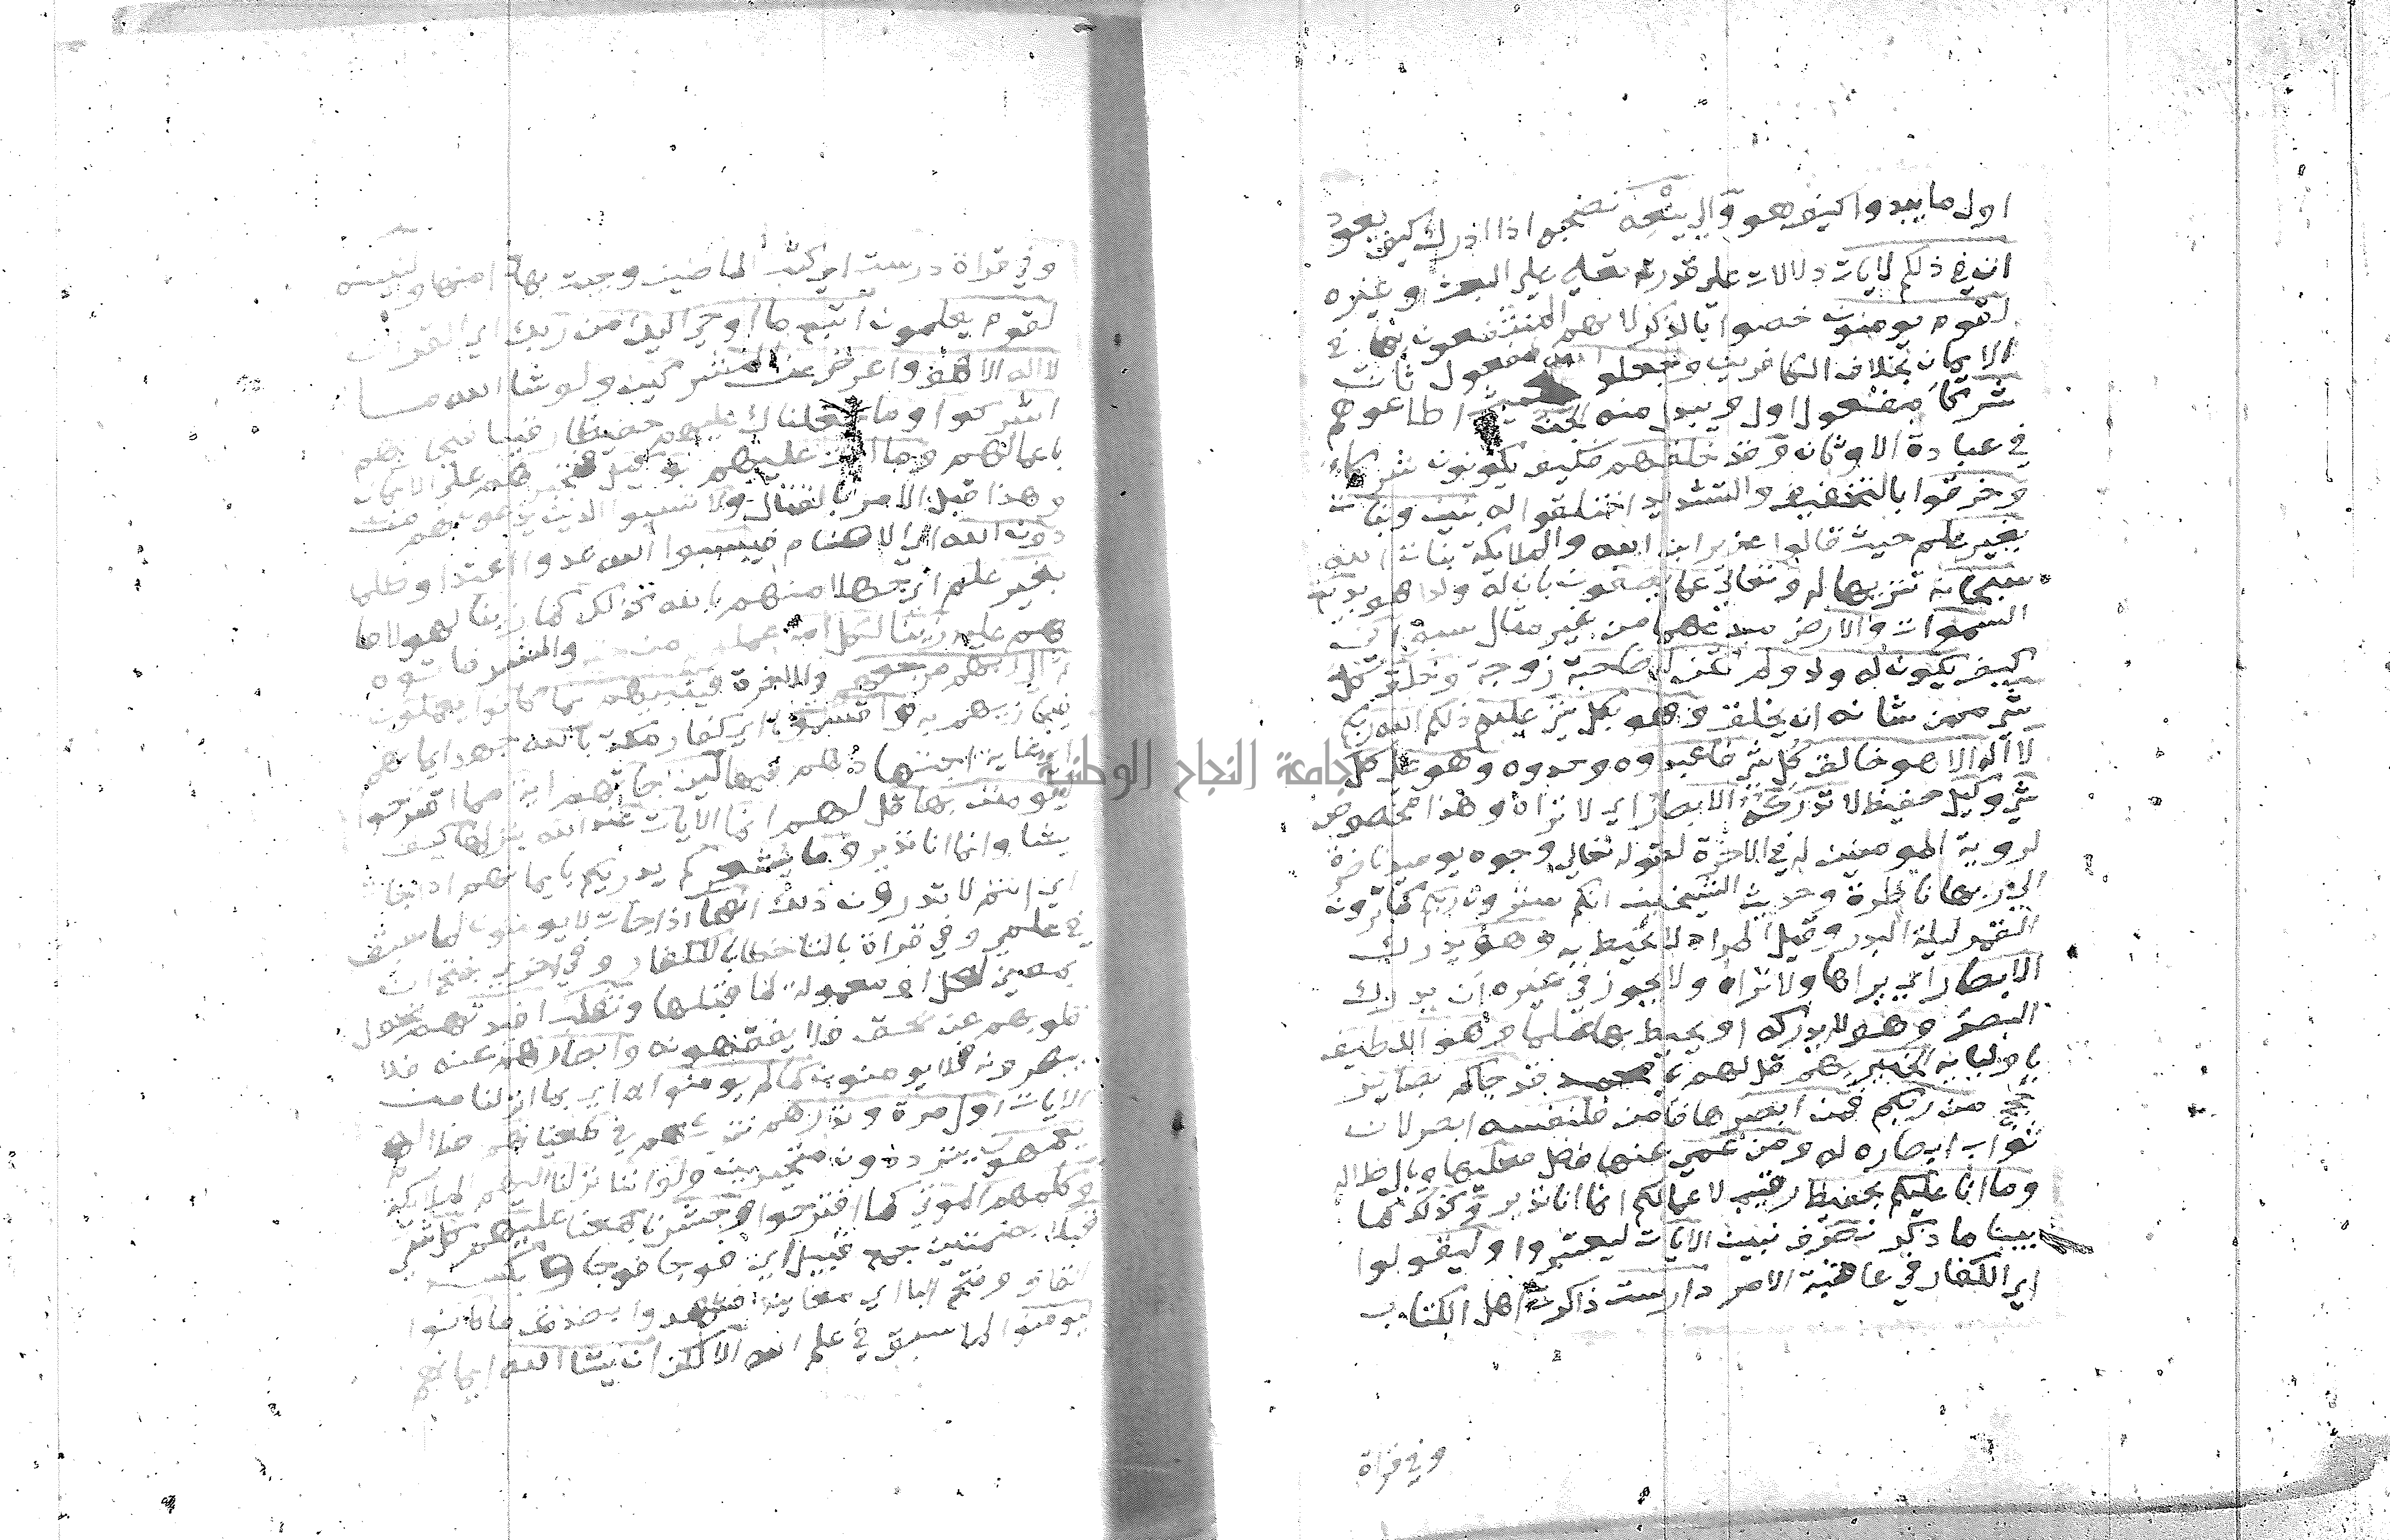 اول ما يبدوا كيف هو والي ينعه نضجه اذا ادرك كيف يعود
ان في ذلكم لايات دلالات علي قدرته تعلي علي البعث وغيره
لقوم يومنون خصوا بالذكر لانهم المنتفعون بها في
الايمان بخلاف الكافرين وجعلوا لله مفعول ثان
شركا مفعول اول ويبدل منه الجن حيث اطاعوهم
في عبادة الاوثان وقد خلقهم فكيف يكونون شركاء
وخرقوا بالتخفيف والتشديد اختلقوا له بنين وبنات
بغير علم حيث قالوا عزير ابن الله والملايكة بنات الله
سبحانه تنزيها له وتعالي عما يصفون بان له ولدا هو بديع
السموات والارض مبدعهما من غير مثال سبق اني
كيف يكون له ولد ولم تكن له صاحبة زوجة وخلق كل
شي ممن شانه ان يخلق وهو بكل شي عليم ذلكم الله ربكم
لا اله الا هو خالق كل شي فاعبدوه وحدوه وهو علي كل
شي وكيل حفيظ لا تدركه الابصار اي لا تراه وهذا مخصوص
لروية المومنين له في الاخرة لقوله تعالي وجوه يوميذ ناضرة
الي ربها ناظرة وحديث الشيخين انكم سترون ربكم كما ترون
القمر ليلة البدر وقيل المراد لا تحيط به وهو يدرك
الابصار اي يراها ولا تراه ولا يجوز في غيره ان يدرك
البصر وهو لا يدركه او يحيط بها علما وهو اللطيف
باوليايه الخبير بهم قل لهم يا محمد قد جاكم بصاير
حجج من ربكم فمن ابصرها فامن فلنفسه ابصر لان
ثواب ابصاره له ومن عمي عنها فضل فعليها وبال ضلاله
وما انا عليكم بحفيظ رقيب لاعمالكم انما انا نذير وكذلك كما
بيبنا ما ذكر نصرف نبين الايات ليعتبروا وليقولوا
اي الكفار في عاقبة الامر دارست ذاكرت اهل الكتاب
وفي قراة
وفي قراة درست اي كتب الماضين وجيت بهذا منها ولنبينه
لقوم يعلمون اتبع ما اوحي اليك من ربك اي القران
لا اله الا هو واعرض عن المشركين ولو شا الله ما
اشركوا وما جعلناك عليهم حفيظا رقيبا فنجازيهم
باعمالهم وما انت عليهم بوكيل فتجبرهم علي الايمان
وهذا قبل الامر بالقتال ولا تسبوا الذين يدعونهم من
دون الله اي الاصنام فيسبوا الله عدوا اعتدا وظلما
بغير علم اي جهلا منهم بالله كذلك كما زينا لهولا ما
هم عليه زينا لكل امة عملهم من والشر فاتوه
ثم الي ربهم مرجعهم في الاخرة فينبيهم بما كانوا يعملون
فيجازيهم به واقسموا اي كفار مكة بالله جهد ايمانهم
اي غاية اجتهادهم فيها لين جاتهم اية مما اقترحوا
ليومنن بها قل لهم انما الايات عند الله ينزلها كيف
يشا وانما انا نذير وما يشعركم يدريكم بايمانهم اذا جات
اي انتم لا تدرون ذلك انها اذا جات لا يومنون لما سبق
في علمي وفي قراة بالتا خطابا للكفار وفي اخري بفتح ان
بمعني لعل او معمولة لما قبلها ونقلب افيدتهم نحول
قلوبهم عن الحق فلا يفقهونه وابصارهم عنه فلا
يبصرونه فلا يومنون كما لم يومنوا به اي بما انزلنا من
الايات اول مرة ونذرهم نتركهم في طغيانهم ضلالهم
يعمهون يترددون متحيرين ولو اننا نزلنا اليهم الملايكة
وكلمهم الموتي كما اقترحوا وحشرنا جمعنا عليهم كل شي
قبلا بضمتين جمع قبيل اي فوجا فوجا وبكسر
القاف وفتح البا اي معاينة فشهدوا بصدقك ما كانوا
ليومنوا لما سبق في علم الله الا لكن ان يشا الله ايمانهم
جامعة النجاح الوطنية